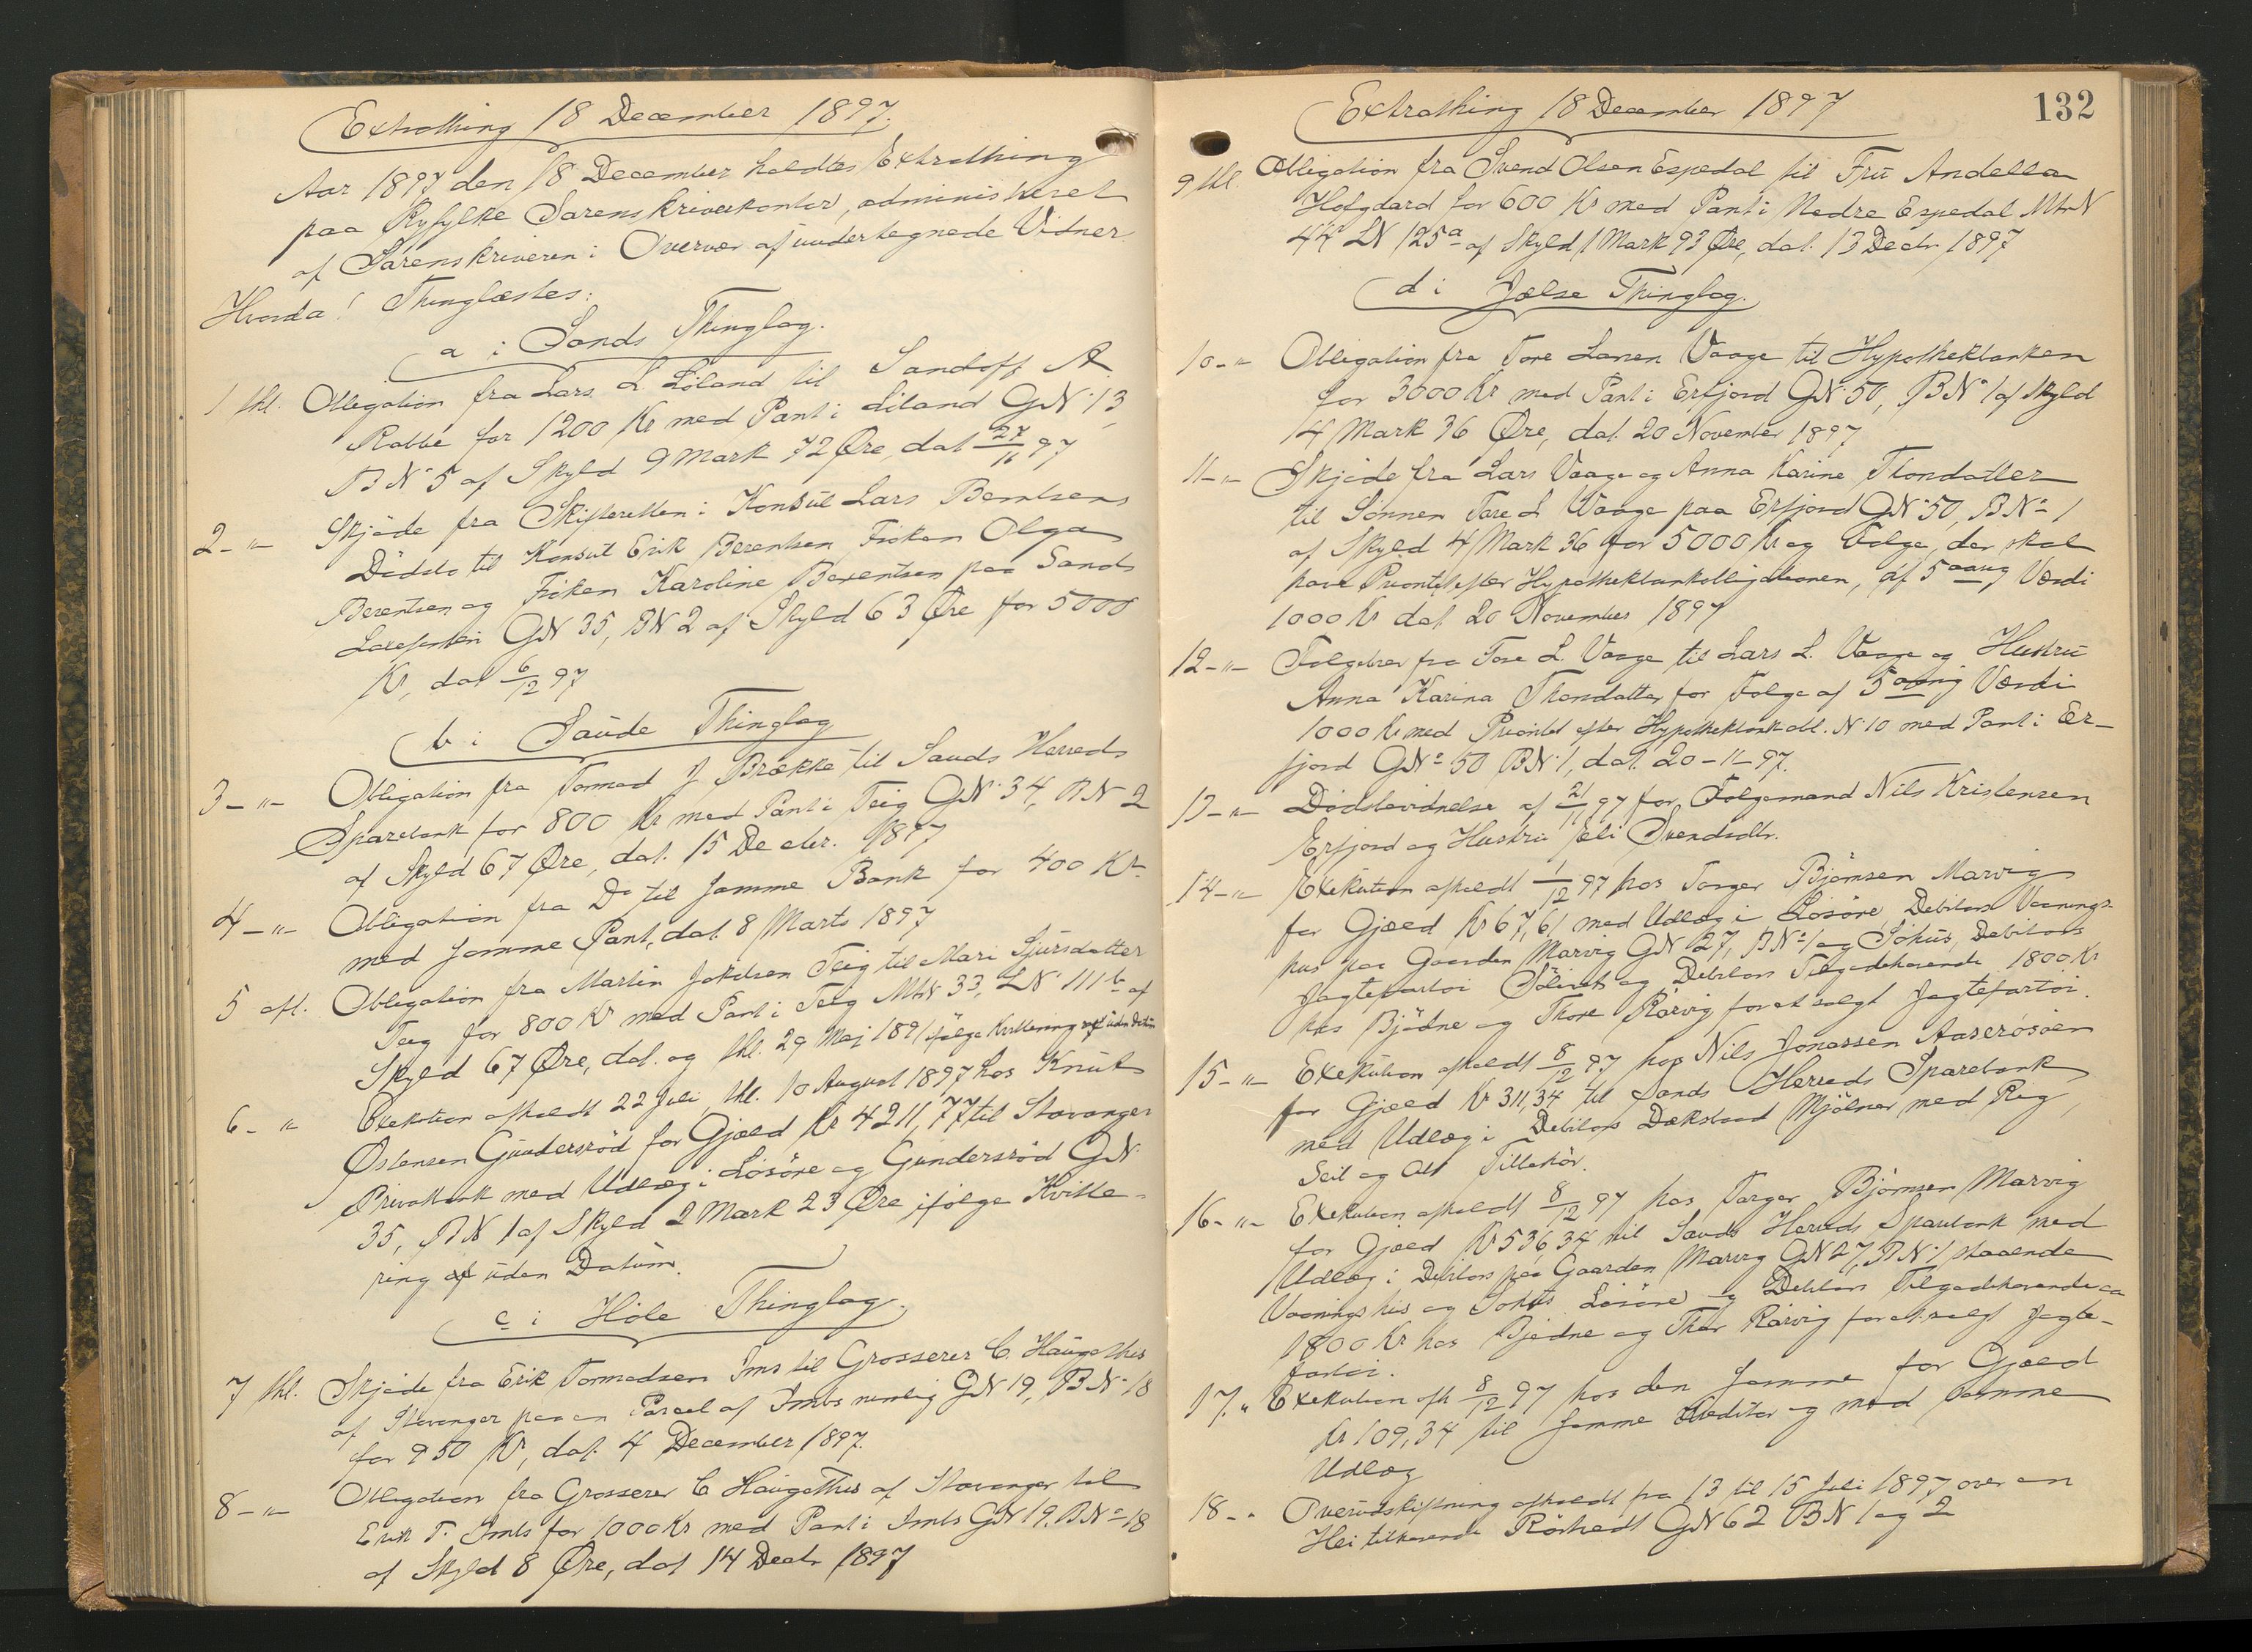 Extrathing 18 December 1897.
Aar 1897 den 18 December holdtes Extrathing
paa Ryfylke Sorenskriverkontor, administreret
af Sorenskriveren i Overvær af undertegnede Vidner
Hvorda! Thinglæstes:
a i Sands Thinglag.
1 thl. Obligation fra Lars L Löland til Sandoff A
Rabbe for 1200 Kr med Pant i Liland GN. 13,
BN. 5 af Skyld 9 Mark 72 Øre, dat 27/11 97
2 - " Skjöde fra Skifteretten i Konsul Lars Berntsens
Dödsbo til Konsul Erik Berentsen Fröken Olga
Berentsen og Fröken Karoline Berentsen paa Sands
GN 35, BN 2 af Skyld 63 Øre for 5000
Kr, dat 6/12 97
b i Saude Thinglag
3 - " Obligation fra Tormod J Brække til Sauds Herreds
Sparebank for 800 Kr med Pant i Teig GN. 34, BN 2
af Skyld 67 Øre, dat. 15 Decbr. 1897
4 - " Obligation fra Do til samme Bank for 400 Kr.
med samme Pant, dat. 8 Marts 1897
5 afl. Obligation fra Martin Jakobsen Teig til Mari Sjursdatter
Teig for 800 Kr med Pant i Teig MtrN 33, LN. 111 b af
Skyld 67 Øre, dat. og thl. 29 Maj 1891 ifølge Kvittering uden Datum
6 - " Exekution afholdt 22 Juli, thl. 10 August 1897 hos Knut
Østensen Gundersröd for Gjæld Kr 4211,77 til Stavanger
Privatbank med Udlæg i Lösöre og Gundersröd GN.
35, BN 1 af Skyld 2 Mark 23 Øre ifølge Kvitte-
ring af uden Datum.
c i Höle Thinglag.
7 thl. Skjöde fra Erik Tormodsen Ims til Grosserer C. Haugathus
af Stavanger paa en Parcel af Imbs nemlig GN 19, BN. 18
for 950 Kr, dat. 4 December 1897.
8 - " Obligation fra Grosserer C Haugathus af Stavanger til
Erik T. Imbs for 1000 Kr med Pant i Imbs GN 19, BN = 18
af Skyld 8 Øre, dat 14 Decbr 1897
Extrathing 18 December 1897
132
9 thl. Obligation fra Svend Olsen Espedal til Fru Andella
Holgdard for 600 Kr med Pant i Nedre Espedal MtrN
44 LN 125a af Skyld 1 Mark 93 Øre, dat. 13 Decbr 1897
d i Jelse Thinglag.
10 - " Obligation fra Tore Larsen Vaage til Hypothekbanken
for 3000 Kr med Pant i Erfjord GN. 50, BN. 1 af Skyld
14 Mark 36 Øre, dat 20 November 1897
11 - " Skjöde fra Lars Vaage og Anna Karine Thondatter
til Sönnen Tore L Vaage paa Erfjord GN. 50, BN = 1
af Skyld 4 Mark 36 for 5000 Kr og Folge, der skal
have Prioritet efter Hypothekbankobligationen, af 5 aarig Værdi
1000 Kr dat 20 November 1897
12 - " Folgebrev fra Tore L. Vaage til Lars L. Vaage og Hustru
Anna Karina Thondatter for Folge af 5 aarig Værdi
1000 Kr med Prioritet efter Hypothekbankobl. N. 10 med Pant i Er-
fjord GN = 50 BN. 1, dat. 20-11-97.
13 - " Dødsbevidnelse af 21/11 97 for Folgemand Nils Kristensen
Erfjord og Hustru Eli Svendsdtr.
14 - " Exekution afholdt 1/12 97 hos Torger Björnsen Marvig
for Gjæld Kr 67,61 med Udlæg i Lösöre, Debitors Vaanings-
hus paa Gaarden Marvig GN 27, BN = 1 og Söhus, Debitors
Jagtefartöi og Debitors Tilgodehavende 1800 Kr
hos Björne og Thore Rörvig for et solgt Jagtefartöi.
15 - " Exekution afholdt 8/12 97 hos Nils Jonassen Aaseròsöen
for Gjæld Kr 311,34 til Sands Herreds Sparebank
med Udlæg i Debitors Dæksbaad Mjölner med Rig,
Seil og Alt Tilbehör.
16 - " Exekution afholdt 8/12 97 hos Torger Björnsen Marvig
for Gjæld Kr 536,34 til Sauds Herreds Sparebank med
Udlæg i Debitors paa Gaarden Marvig GN 27, BN. 1 staaende
Vaaningshus og Söhus Lösöre og Debitors Tilgodehavende ca
1800 Kr hos Björne og Thor Rörvig for et solgt Jagte-
fartöi.
17. " Exekution afh 8/12 97 hos den samme for Gjæld
Kr 109,34 til samme Kreditor og med samme
Udlæg
18 - " Overudskiftning afholdt fra 13 til 15 Juli 1897 over en
Hei tilhørende Rörhedt GN 62 BN 1 og 2